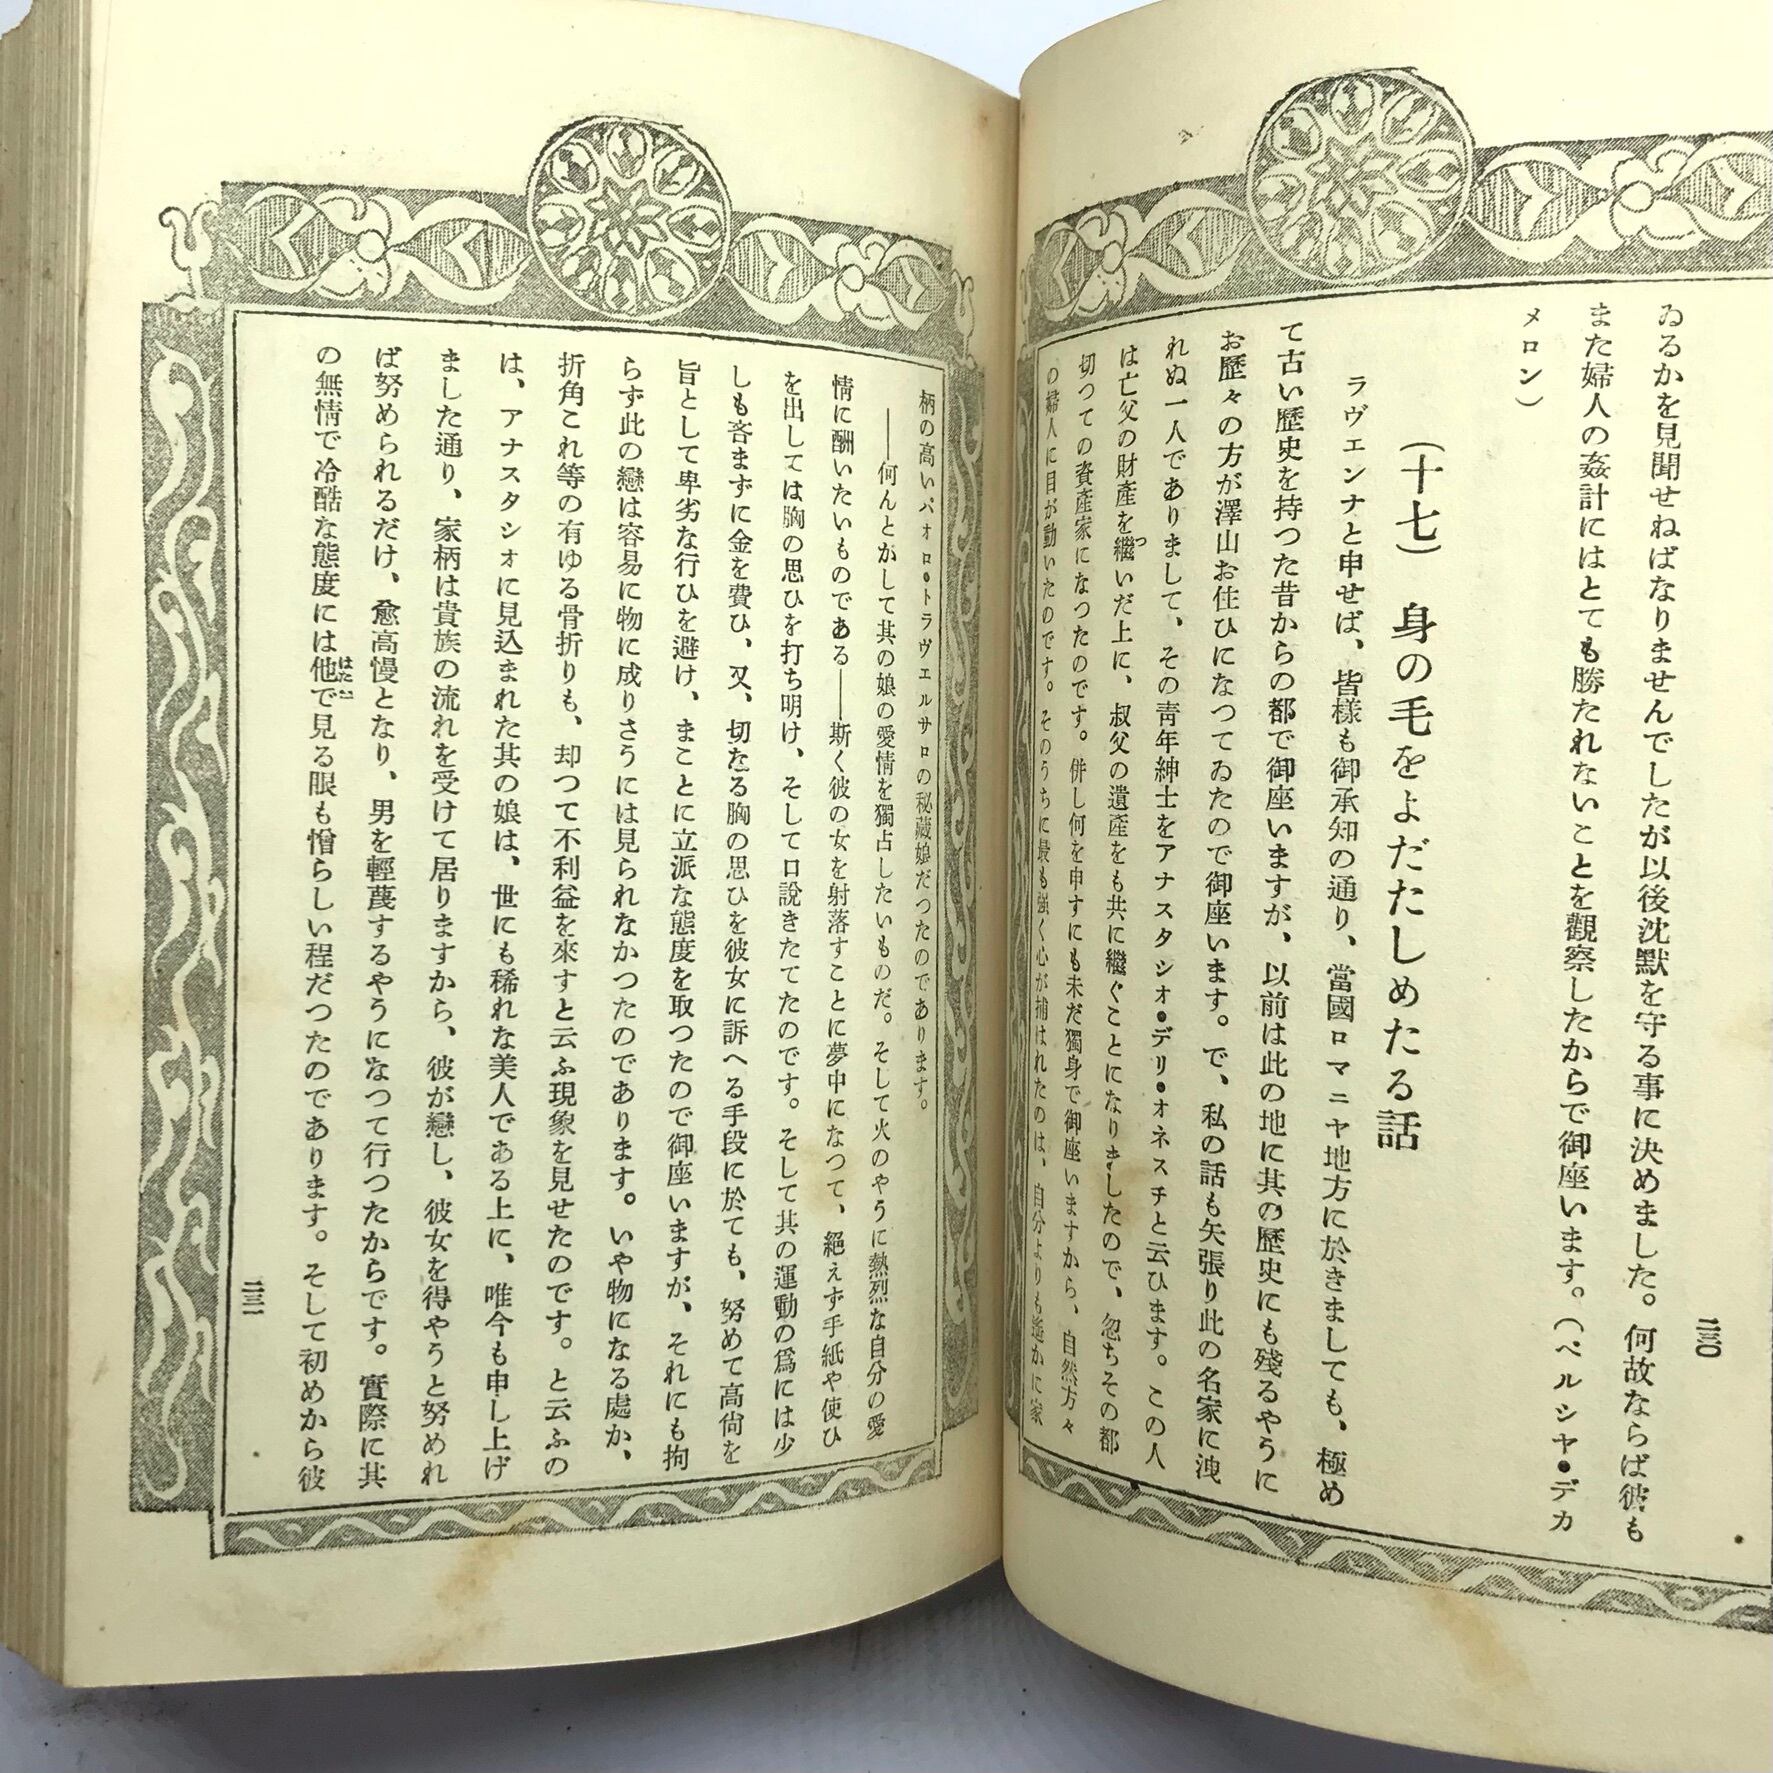 二三〇
ゐるかを見聞せねばなりませんでしたが以後沈默を守る事に決めました。何故ならば彼も
また婦人の姦計にはとても勝たれないことを觀察したからで御座います。(ペルシヤ・デカ
メロン)
(十七) 身の毛をよだたしめたる話
ラヴエンナと申せば、皆樣も御承知の通り、當國ロマニヤ地方に於きましても、極め
て古い歷史を持つた昔からの都で御座いますが、以前は此の地に其の歷史にも殘るやうに
お歷々の方が澤山お住ひになつてゐたので御座います。で、私の話も矢張り此の名家に洩
れぬ一人でありまして、その靑年紳士をアナスタシオ・デリ・オネスチと云ひます。この人
は亡父の財產を繼いだ上に、叔父の遺產をも共に繼ぐことになりましたので、忽ちその都
切つての資產家になつたのです。併し何を申すにも未だ獨身で御座いますから、自然方々
の婦人に目が動いたのです。そのうちに最も强く心が捕はれたのは、自分よりも遙かに家
柄の高いパオロ・トラヴエルサロの秘藏娘だつたのであります。
――何んとかして其の娘の愛情を獨占したいものだ。そして火のやうに熱烈な自分の愛
情に酬いたいものである――斯く彼の女を射落すことに夢中になつて、絕えず手紙や使ひ
を出しては胸の思ひを打ち明け、そして口說きたてたのです。そして其の運動の爲には少
しも吝まずに金を費ひ、又、切なる胸の思ひを彼女に訴へる手段に於ても、努めて高尙を
旨として卑劣な行ひを避け、まことに立派な態度を取つたので御座いますが、それにも拘
らず此の戀は容易に物に成りさうには見られなかつたのであります。いや物になる處か、
折角これ等の有ゆる骨折りも、却つて不利益を來すと云ふ現象を見せたのです。と云ふの
は、アナスタシオに見込まれた其の娘は、世にも稀れな美人である上に、唯今も申し上げ
ました通り、家柄は貴族の流れを受けて居りますから、彼が戀し、彼女を得やうと努めれ
ば努められるだけ、愈高慢となり、男を輕蔑するやうになつて行つたからです。實際に其
の無情で冷酷な態度には他で見る眼も憎らしい程だつたのであります。そして初めから彼
二三一